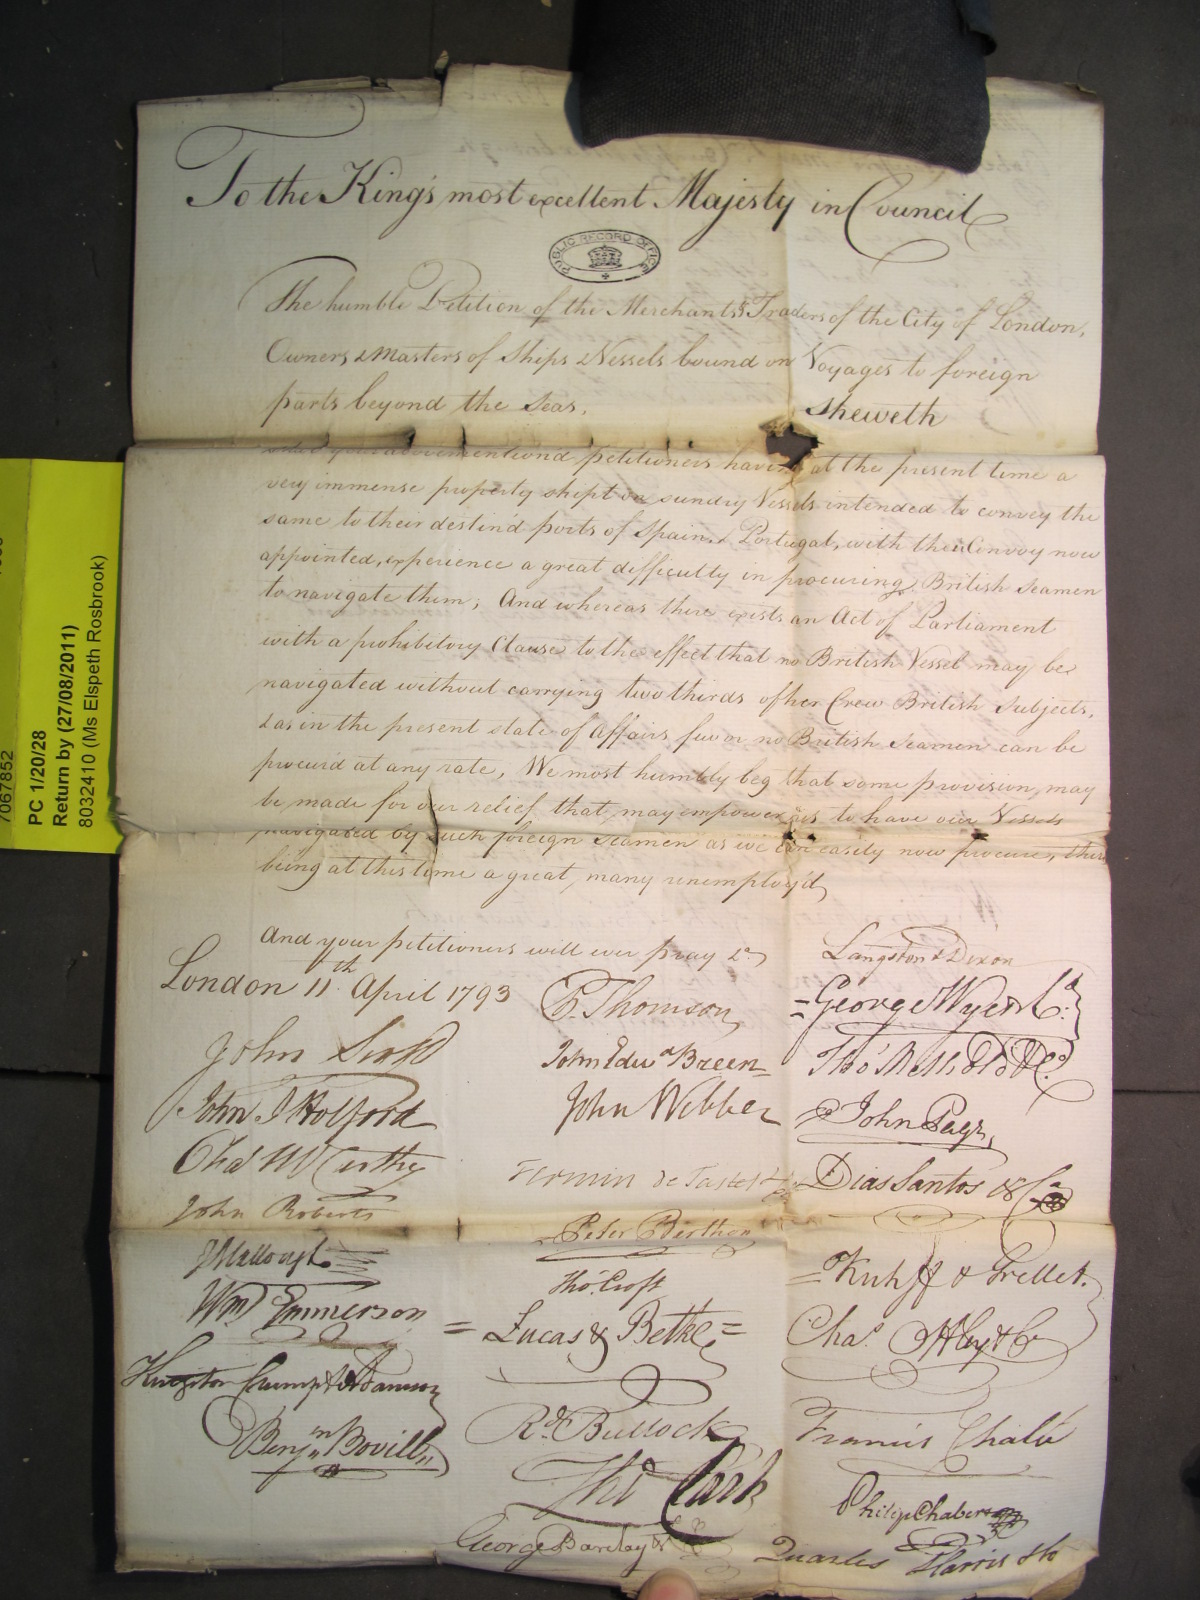 To the King's most excellent Majesty in Council
PUBLIC RECORD OFFICE
The humble Petition of the Merchants & Traders of the City of London,
Owners & Masters of Ships & Vessels bound on Voyages to foreign
parts beyond the Seas,
Sheweth
your abovementiond petitioners having at the present time a
very immense property shipt on sundry Vessels intended to convey the
same to their destin'd ports of Spain & Portugal, with the Convoy now
appointed, experience a great difficulty in procuring British Seamen
to navigate them; And whereas there exists an Act of Parliament
with a prohibitory Clause to the effect that no British Vessel may be
navigated without carrying two thirds of her Crew British Subjects,
& as in the present state of affairs few or no British Seamen can be
procured at any rate, We most humbly beg that some provision may
be made for our relief that may empower us to have our Vessels
navigated by such foreign Seamen as we can easily now procure, there
being at this time a great many unemploy'd
And your petitioners will ever pray &c
London 11th April 1793
John
John J Holford
Chas McCarthy
John Roberts
Wm Emmerson
Crump &
Benjn Bovill
P. Thomson
John Edwd Breen
John Webber
Fermin de Tastet &
Peter Berthon
Thos. Croft
Lucas & Bethe
Rd Bullock
Thos Clark
George Barclay &
Langston & Dixon
George Wyer & Co.
Thos
John Page
Dias Santos & Co
Kuhff & Grellet
Chas.
Francis Chalié
Philip Chabert
Quarles Harris &
7067852
PC 1/20/28
Return by (27/08/2011)
8032410 (Ms Elspeth Rosbrook)